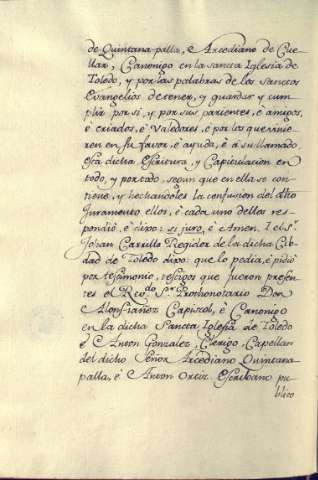 de Quintana palla, Arcediano de Cue
llar, Canonigo en la sancta Iglesia de
Toledo, y por las palabras de los sanctos
Evangelios de tener, y guardar y cum
plir por si, y por sus parientes, é amigos,
é criados, é Valedores, é por los que vinie
ren en su favor, é ayuda, é á su llamado,
esta dicha Escritura, y Capitulacion en
todo, y por todo, segun que en ella se con
tiene, y hechandoles la confusion del dho
Juramento, ellos, é cada uno dellos res
pondió, é dixo: si juro, é Amen. I el s.r
Johan Carrillo Regidor de la dicha Cib
dad de Toledo dixo: que lo pedia, é pidió
por testimonio, testigos que fueron presen
tes el Rev.do S.r Prothonotario Don
Alonso Yañez Capiscol, é Canonigo
en la dicha Sancta Iglesia de Toledo
é Anton Gonzalez, Clerigo, Capellan
del dicho Señor Arcediano Quintana
palla, é Anton Ortiz Escribano pu
blico